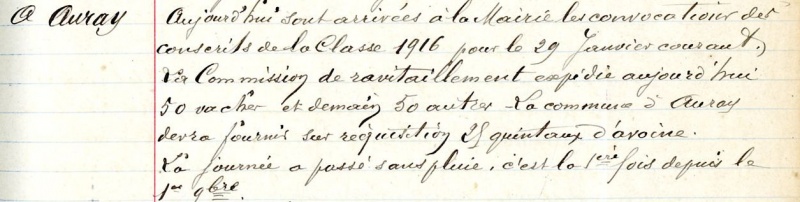 à Auray
Aujourd'hui sont arrivées à la Mairie les convocations des
conscrits de la Classe 1916 pour le 29 Janvier courant.
La Commission de ravitaillement expédie aujourd'hui
50 vaches et demain 50 autres. La commune d'Auray
devra fournir sur réquisition 25 quintaux d'avoine.
La journée a passé sans pluie, c'est la 1ère fois depuis le
1er 9bre.